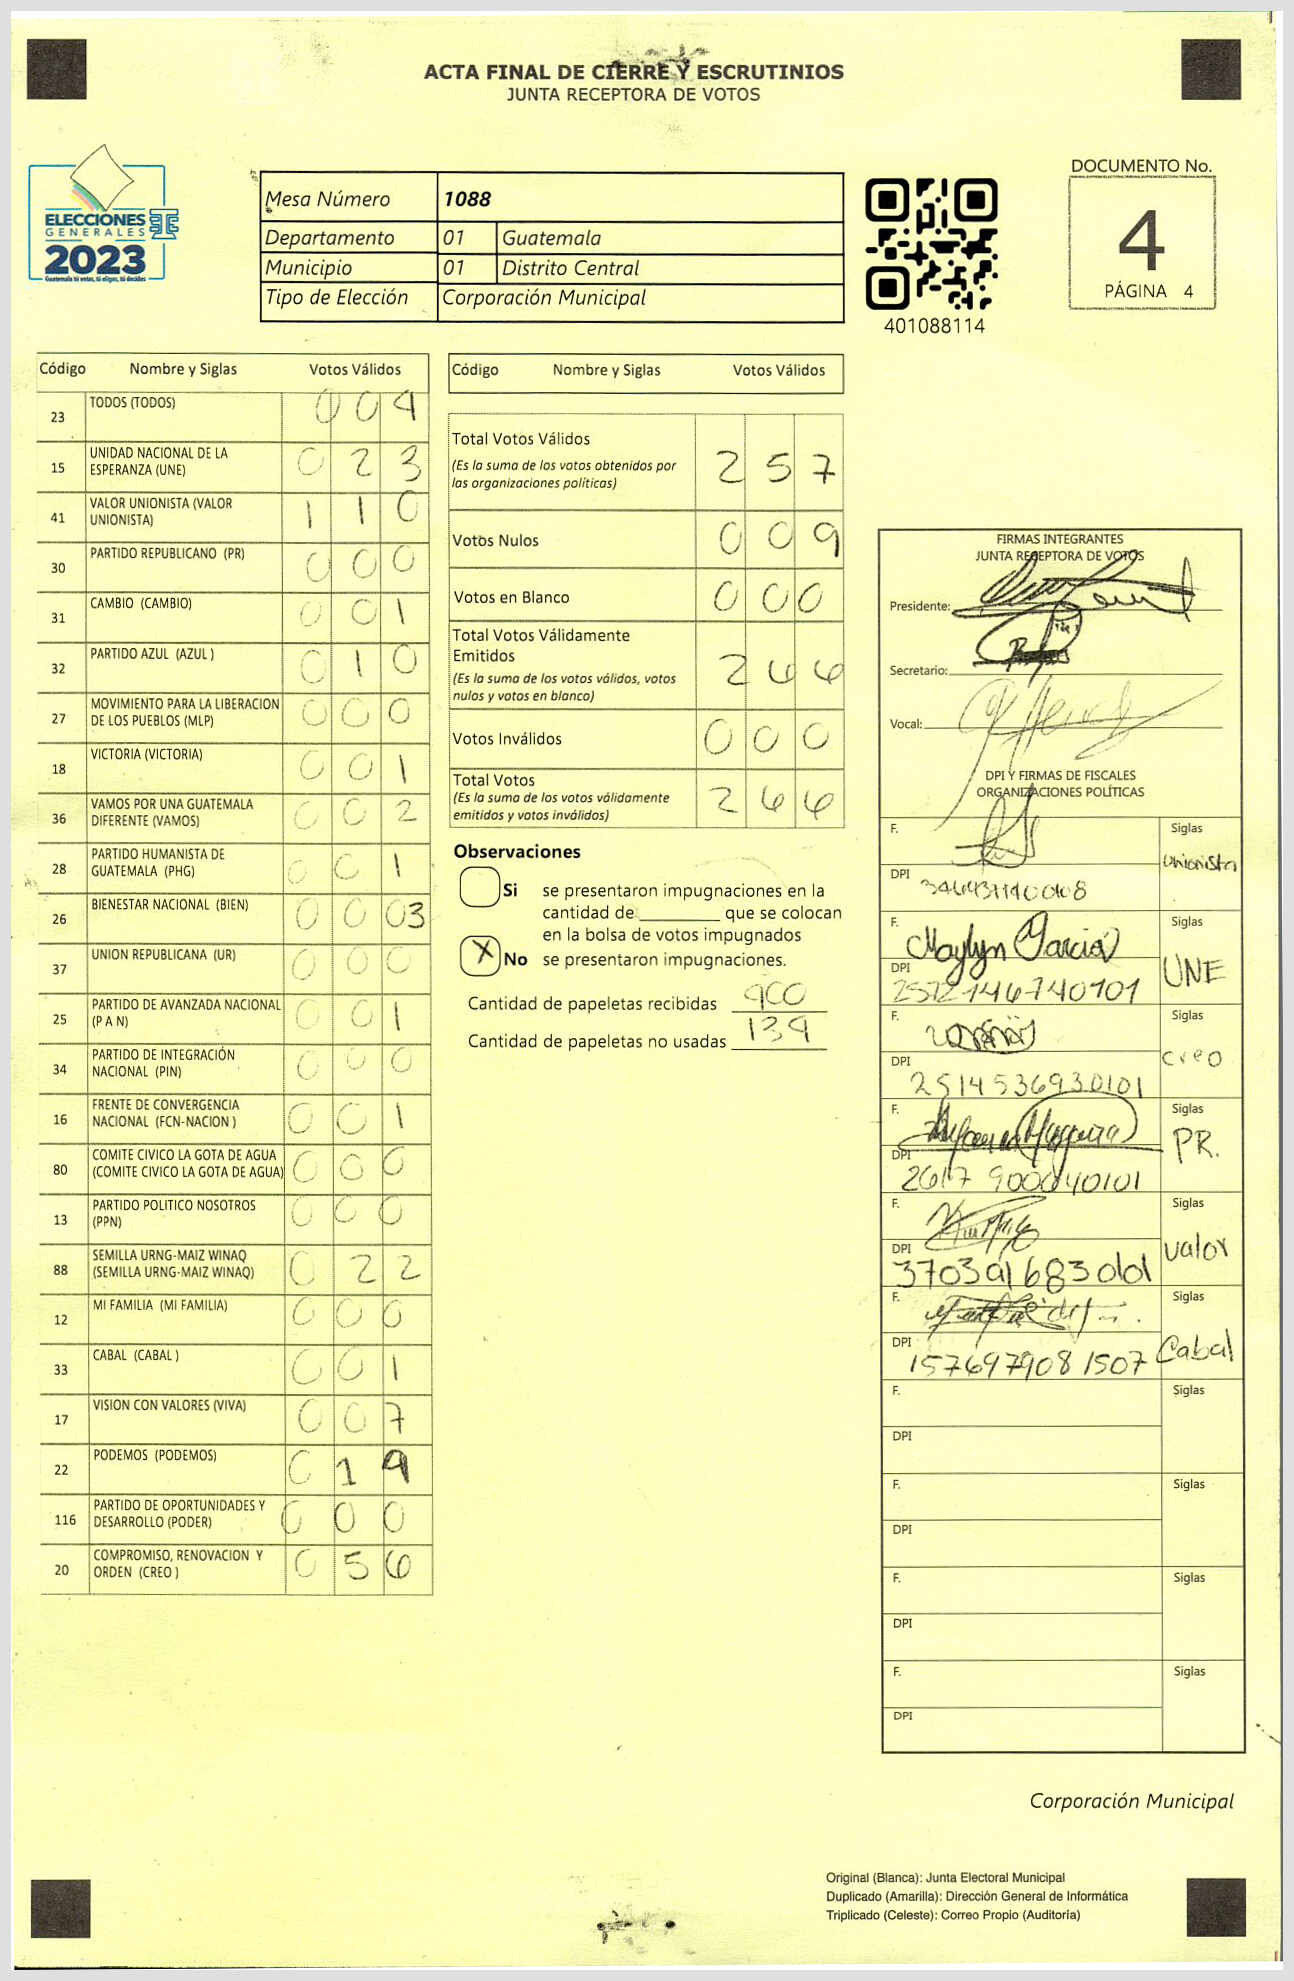 ACTA FINAL DE CIERRE Y ESCRUTINIOS
JUNTA RECEPTORA DE VOTOS
ELECCIONES
GENERALES
2023
Guatemala tú votas, tú eliges, tú decides
Mesa Número 1088
Departamento 01 Guatemala
Municipio 01 Distrito Central
Tipo de Elección Corporación Municipal
401088114
DOCUMENTO No.
4
PÁGINA 4
Código Nombre y Siglas Votos Válidos
23 TODOS (TODOS) 0 0 4
15 UNIDAD NACIONAL DE LA ESPERANZA (UNE) 0 2 3
41 VALOR UNIONISTA (VALOR UNIONISTA) 1 1 0
30 PARTIDO REPUBLICANO (PR) 0 0 0
31 CAMBIO (CAMBIO) 0 0 1
32 PARTIDO AZUL (AZUL ) 0 1 0
27 MOVIMIENTO PARA LA LIBERACION DE LOS PUEBLOS (MLP) 0 0 0
18 VICTORIA (VICTORIA) 0 0 1
36 VAMOS POR UNA GUATEMALA DIFERENTE (VAMOS) 0 0 2
28 PARTIDO HUMANISTA DE GUATEMALA (PHG) 0 0 1
26 BIENESTAR NACIONAL (BIEN) 0 0 03
37 UNION REPUBLICANA (UR) 0 0 0
25 PARTIDO DE AVANZADA NACIONAL (P A N) 0 0 1
34 PARTIDO DE INTEGRACIÓN NACIONAL (PIN) 0 0 0
16 FRENTE DE CONVERGENCIA NACIONAL (FCN-NACION ) 0 0 1
80 COMITE CIVICO LA GOTA DE AGUA (COMITE CIVICO LA GOTA DE AGUA) 0 0 0
13 PARTIDO POLITICO NOSOTROS (PPN) 0 0 0
88 SEMILLA URNG-MAIZ WINAQ (SEMILLA URNG-MAIZ WINAQ) 0 2 2
12 MI FAMILIA (MI FAMILIA) 0 0 0
33 CABAL (CABAL ) 0 0 1
17 VISION CON VALORES (VIVA) 0 0 7
22 PODEMOS (PODEMOS) 0 1 9
116 PARTIDO DE OPORTUNIDADES Y DESARROLLO (PODER) 0 0 0
20 COMPROMISO, RENOVACION Y ORDEN (CREO ) 0 5 6
Código Nombre y Siglas Votos Válidos
Total Votos Válidos 2 5 7
(Es la suma de los votos obtenidos por
las organizaciones políticas)
Votos Nulos 0 0 9
Votos en Blanco 0 0 0
Total Votos Válidamente
Emitidos 2 6 6
(Es la suma de los votos válidos, votos
nulos y votos en blanco)
Votos Inválidos 0 0 0
Total Votos 2 6 6
(Es la suma de los votos válidamente
emitidos y votos inválidos)
Observaciones
Si se presentaron impugnaciones en la
cantidad de ________ que se colocan
en la bolsa de votos impugnados
X No se presentaron impugnaciones.
Cantidad de papeletas recibidas 400
Cantidad de papeletas no usadas 134
FIRMAS INTEGRANTES
JUNTA RECEPTORA DE VOTOS
Presidente:
Secretario:
Vocal:
DPI Y FIRMAS DE FISCALES
ORGANIZACIONES POLÍTICAS
F. Siglas
DPI Unionista
F. Maylyn Garcia Siglas
DPI UNE
F. Siglas
DPI 2514536930101 creo
F. Siglas
DPI 2617 900040101 PR.
F. Siglas
DPI valor
F. Siglas
DPI 1576979081507 Cabal
F. Siglas
DPI
F. Siglas
DPI
F. Siglas
DPI
F. Siglas
DPI
Corporación Municipal
Original (Blanca): Junta Electoral Municipal
Duplicado (Amarilla): Dirección General de Informática
Triplicado (Celeste): Correo Propio (Auditoría)